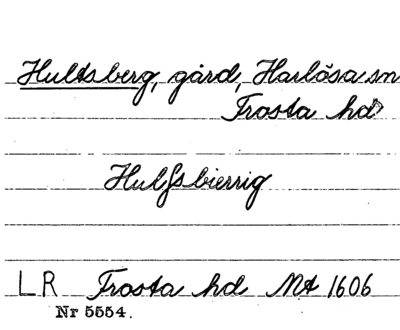 Hultsberg, gård, Harlösa sn
Frosta hd
Hulfsbierrig
LR Frosta hd Mt 1606
Nr 5554.